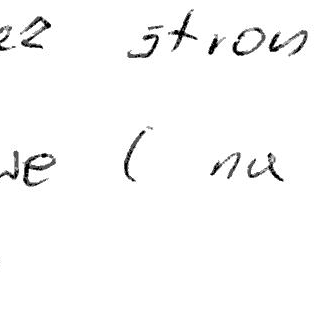 ez stron
we ( na